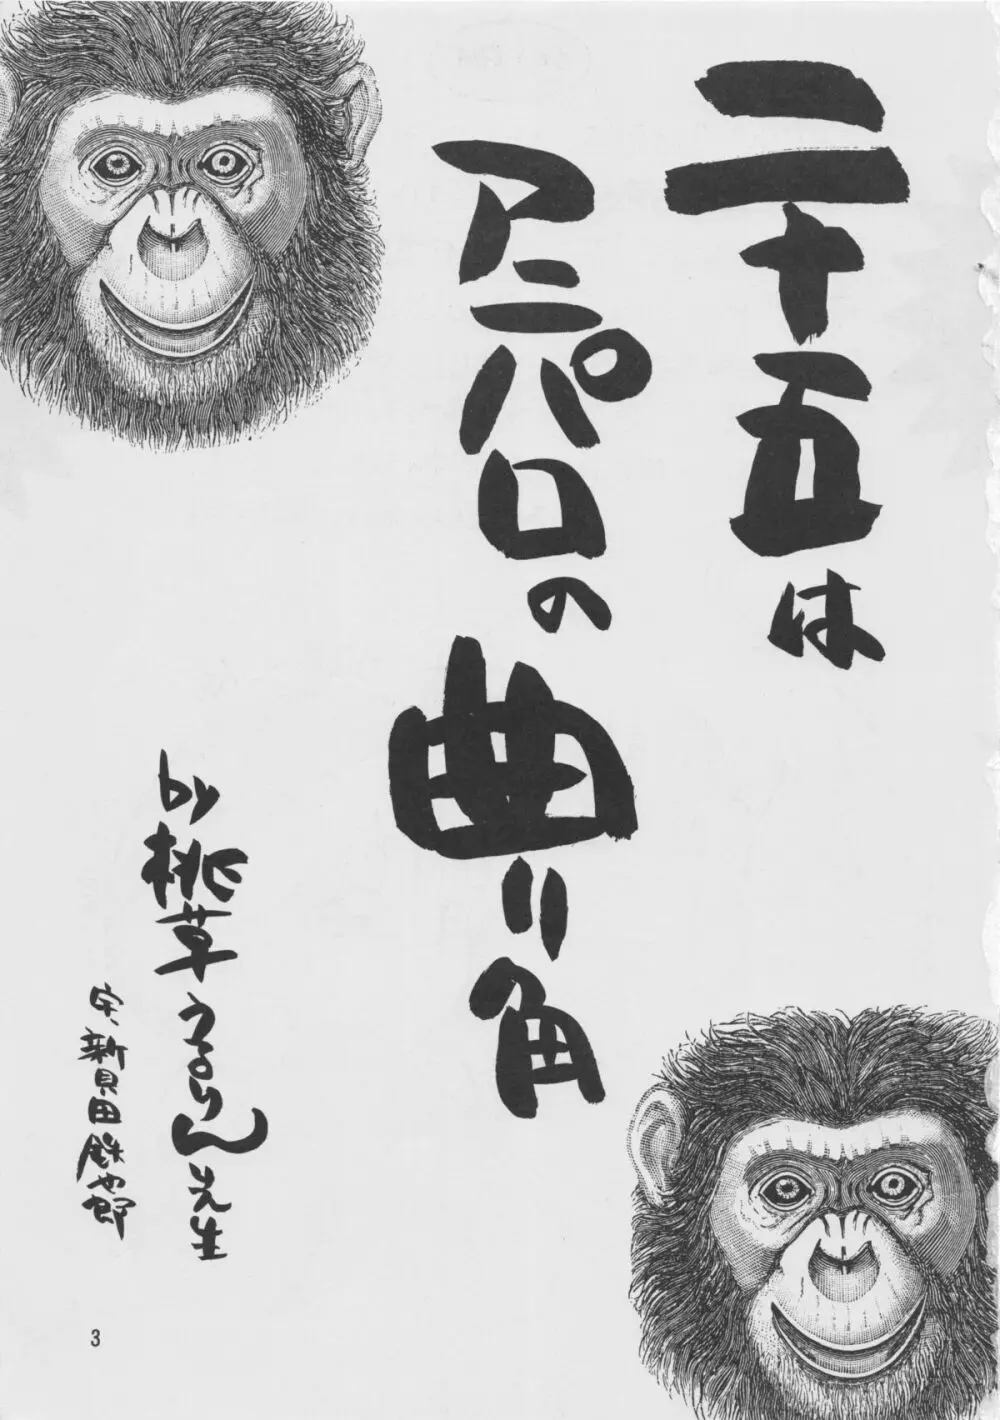 二十五は
アニパロの曲り角
by 桃草うるりん先生
字、新貝田鉄也郎
3